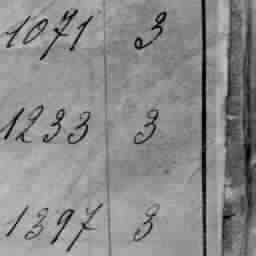 1071 3
1233 3
1397 3